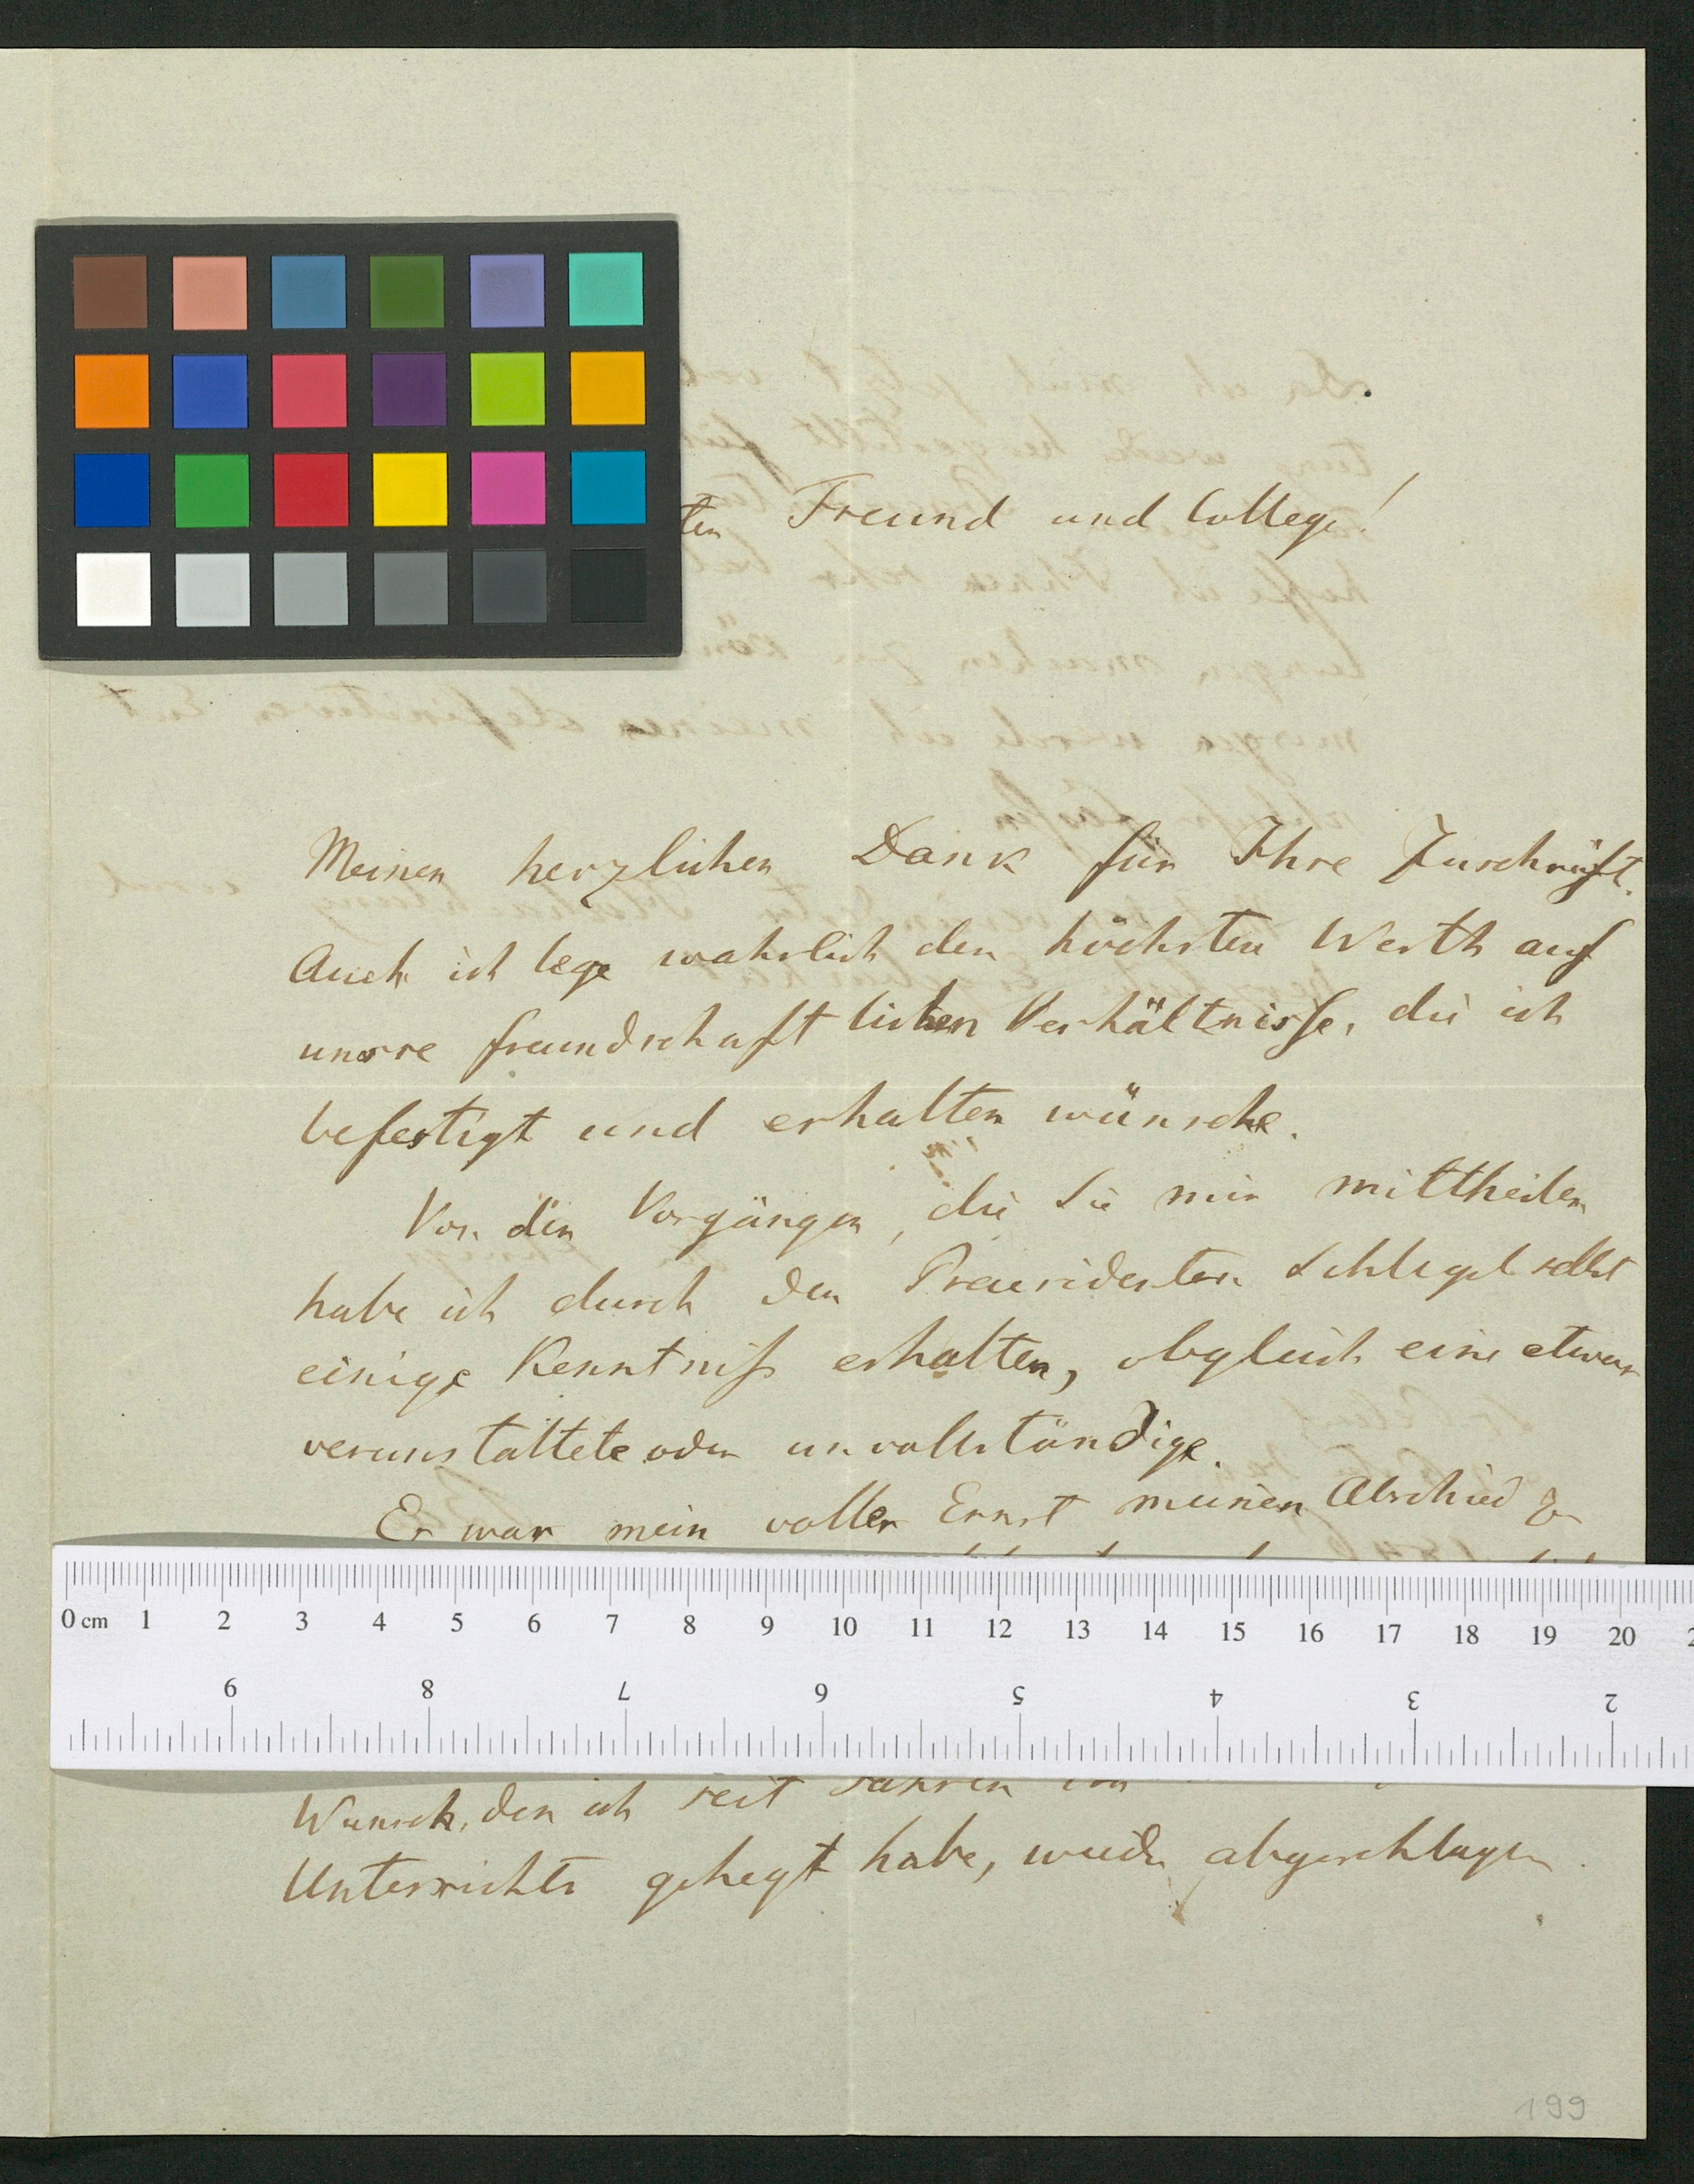 ten Freund und College!
Meinen herzlichen Dank für Ihre Zuschrift.
Auch ich lege wahrlich den höchsten Werth auf
unsre freundschaftlichen Verhältnisse, die ich
befestigt und erhalten wünsche.
Von den Vorgängen, die Sie mir mittheilen
habe ich durch den Praesidenten Schlegel selbst
einige Kenntniß erhalten, obgleich eine etwas
verunstaltete oder unvollständige.
Es war mein voller Ernst meinen Abschied zu
0 cm 1 2 3 4 5 6 7 8 9 10 11 12 13 14 15 16 17 18 19 20
9 8 7 6 5 4 3 2
Wunsch, den ich seit Jahren
Unterrichts gehegt habe, wurde abgeschlagen.
199